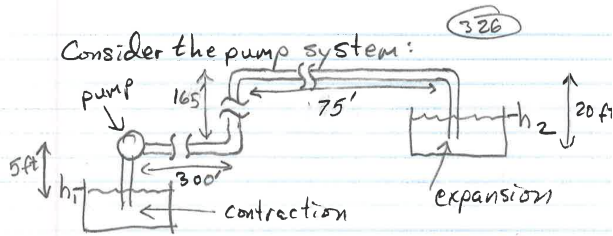 326
Consider the pump system:
pump
165'
75'
20 ft
h2
5 ft
h1
300'
contraction
expansion